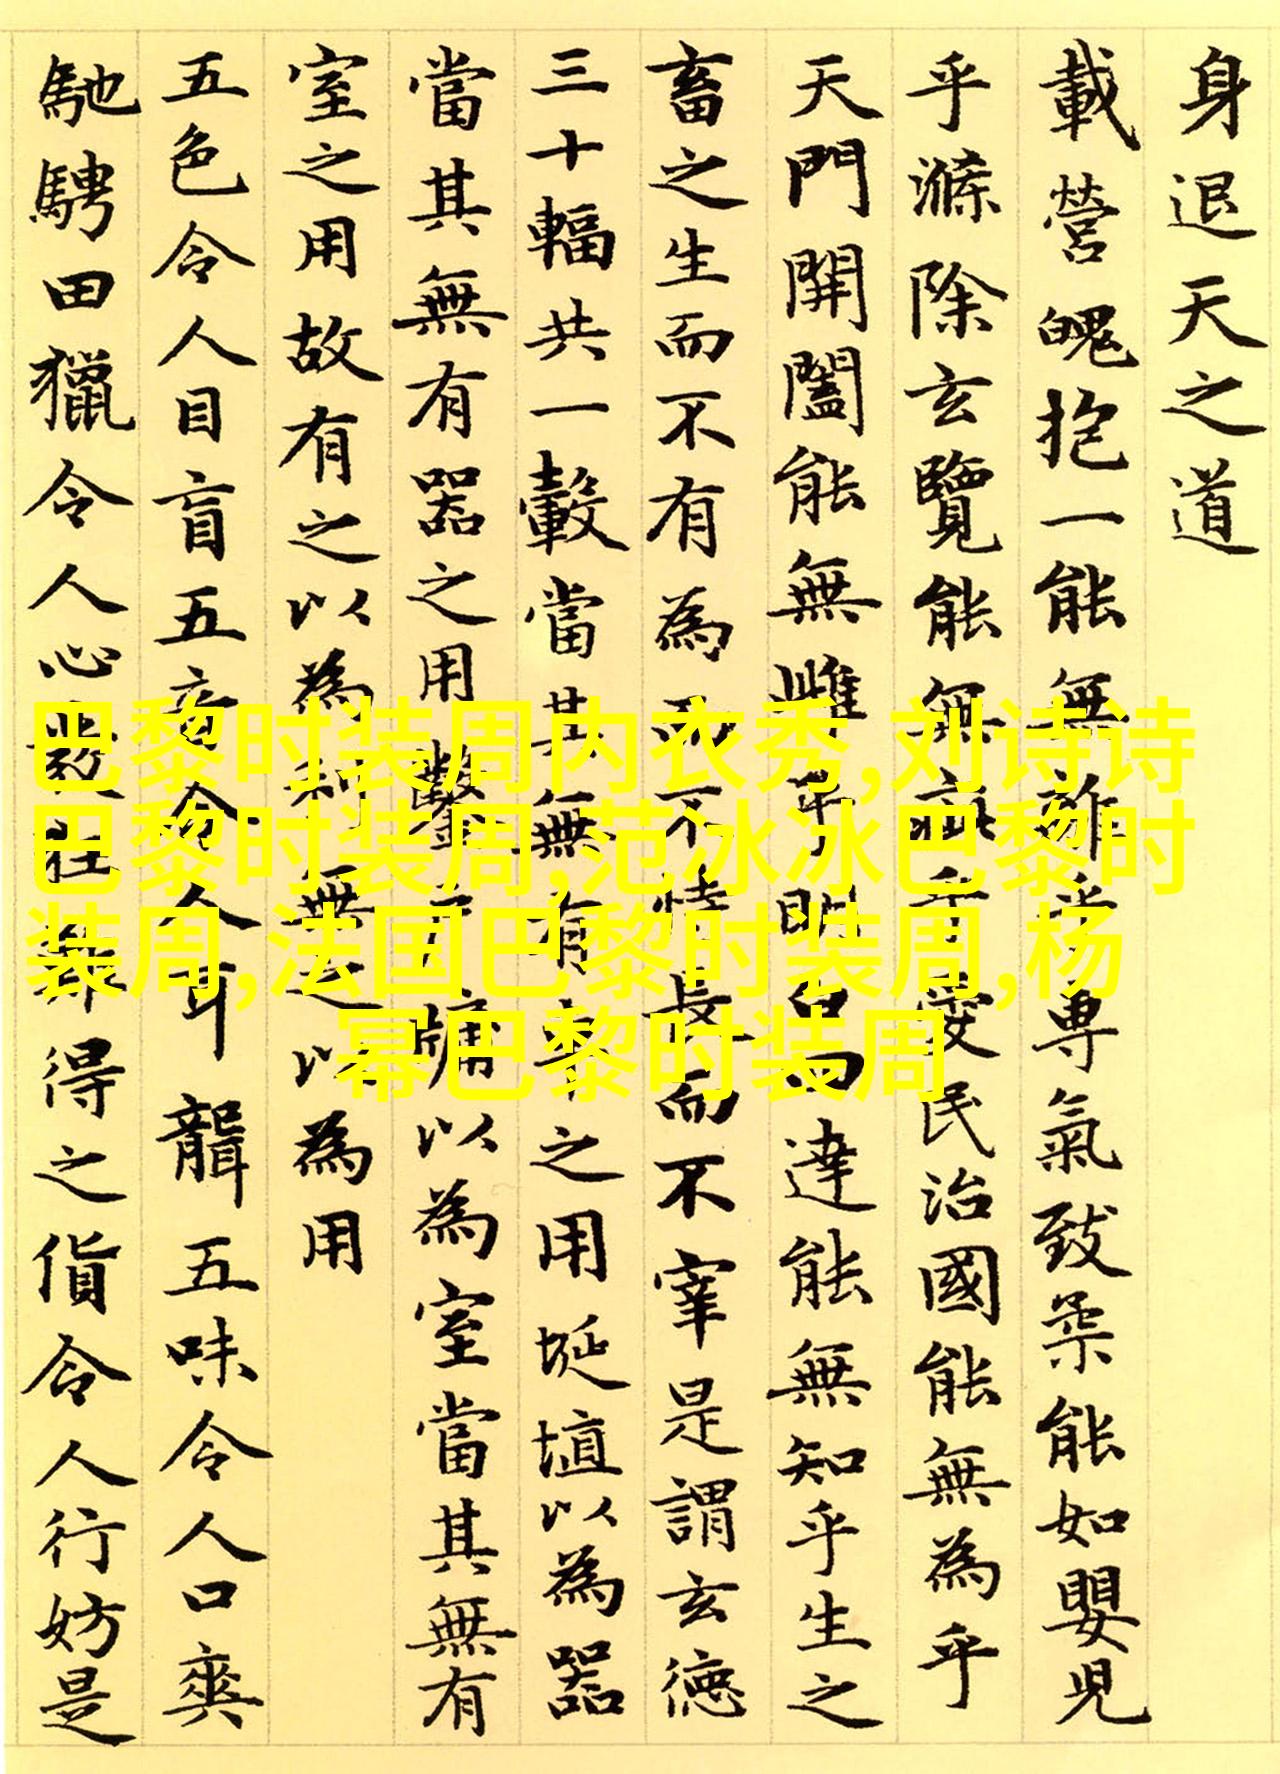 身退天之道
載營魄抱一能無離乎專氣致柔能如嬰兒
乎滌除玄覽能無疵乎愛民治國能無為乎
天門開闔能無雌乎明白四達能無知乎生之
畜之生而不有為而不恃長而不宰是謂玄德
三十輻共一轂當其無有車之用埏埴以為器
當其無有器之用鑿戶牖以為室當其無有
室之用故有之以為利無之以為用
五色令人目盲五音令人耳聾五味令人口爽
馳騁田獵令人心發狂難得之貨令人行妨是
巴黎时装周内衣秀,刘诗诗
巴黎时装周,范冰冰巴黎时
装周,法国巴黎时装周,杨
幂巴黎时装周